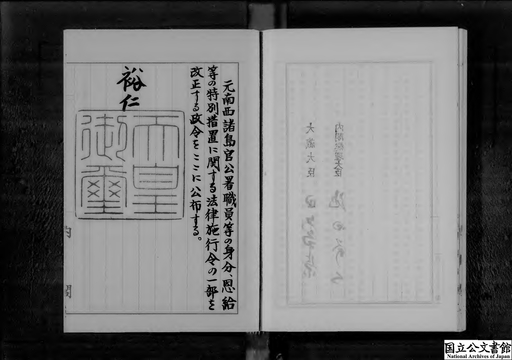 元南西諸島官公署職員等の身分、恩給
等の特別措置に関する法律施行令の一部を
改正する政令をここに公布する。
裕仁
天皇
御璽
内閣
国立公文書館
National Archives of Japan